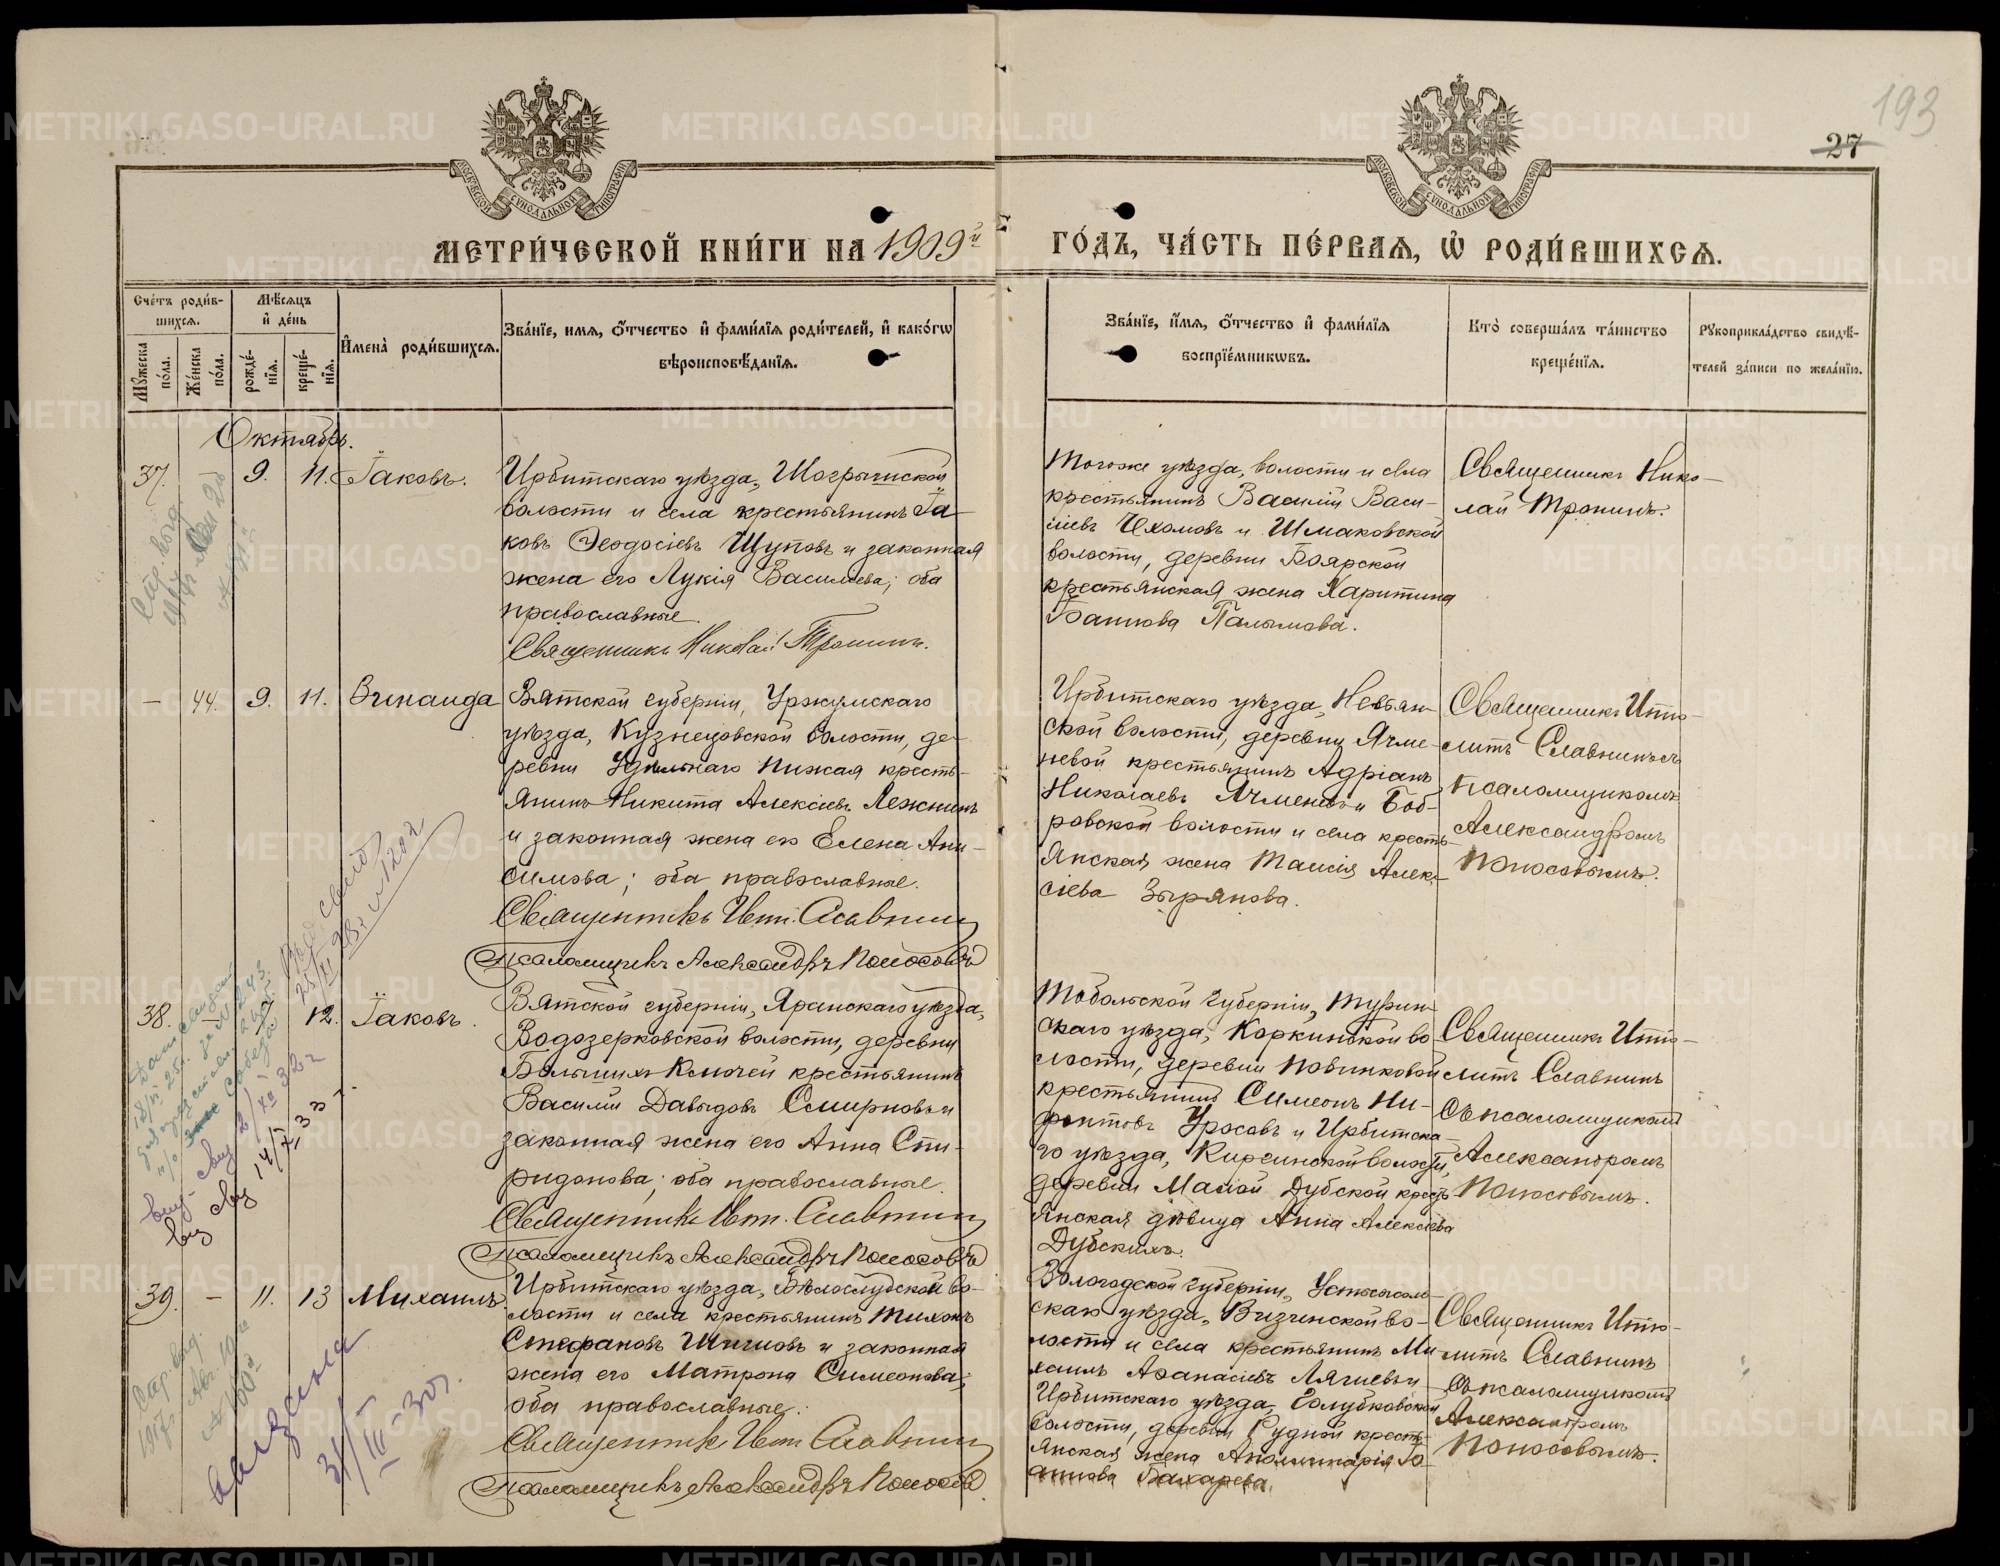 193
27
МОСКОВСКОЙ СѴНОДАЛЬНОЙ ТИПОГРАФІИ
МОСКОВСКОЙ СѴНОДАЛЬНОЙ ТИПОГРАФІИ
МЕТРИ́ЧЕСКОЙ КНИ́ГИ НА 1909й
ГО́ДЪ, ЧА́СТЬ ПЕ́РВАѦ, Ѽ РОДИ́ВШИХСѦ.
Сче́тъ роди́в-
шихсѧ.
Мѣ́сѧцъ
и҆ де́нь
Мꙋ́жеска
по́ла.
Же́нска
по́ла.
рожде́-
нїѧ.
креще́-
нїѧ.
И҆мена̀ роди́вшихсѧ.
Зва́нїе, имѧ, ѻ҆́тчество и҆ фами́лїѧ роди́телей, и҆ како́гѡ
вѣроисповѣ́данїѧ.
Зва́нїе, и҆́мѧ, ѻ҆́тчество и҆ фами́лїѧ
воспрїе́мникѡвъ.
Кто̀ соверша́лъ та́инство
креще́нїѧ.
Рꙋкоприкла́дство свидѣ́-
телей за́писи по жела́нїю.
Октябрь.
37.
9.
11.
Іаковъ.
Ирбитскаго уѣзда, Шогрышской
волости и села крестьянинъ Іа-
ковъ Ѳеодосіевъ Щуповъ и законная
жена его Лукія Васильева; оба
православные.
Священникъ Николай Тронинъ.
Тогоже уѣзда, волости и села
крестьянинъ Василій Васи-
ліевъ Чехомовъ и Шмаковской
волости, деревни Боярской
крестьянская жена Харитина
Іоаннова Палымова.
Священникъ Нико-
лай Тронинъ.
—
44.
9.
11.
Зинаида
Вятской губерніи, Уржумскаго
уѣзда, Кузнецовской волости, де-
ревни Удѣльнаго Нижая кресть-
янинъ Никита Алексіевъ Лежнинъ
и законная жена его Елена Ани-
симова; оба православные.
Священникъ Ипп. Славнин
Псаломщикъ Александръ Поносовъ
Ирбитскаго уѣзда, Невьян-
ской волости, деревни Ячме-
невой крестьянинъ Адріанъ
Николаевъ Ячменевъ и Боб-
ровской волости и села кресть-
янская жена Таисія Алек-
сіева Зырянова.
Священникъ Иппо-
литъ Славнинъ съ
псаломщикомъ
Александромъ
Поносовымъ.
38.
—
12.
Іаковъ.
Вятской губерніи, Яранскаго уѣзда,
Водозерковской волости, деревни
Большихъ Ключей крестьянинъ
Василій Давыдовъ Смирновъ и
законная жена его Анна Спи-
ридонова; оба православные.
Священникъ Ипп. Славнин
Псаломщикъ Александръ Поносовъ
Тобольской губерніи, Турин-
скаго уѣзда, Коркинской во-
лости, деревни Новинковой
крестьянинъ Симеонъ Ни-
фонтовъ Уросовъ и Ирбитска-
го уѣзда, Киргинской волости,
деревни Малой Дубской крест-
янская дѣвица Анна Алексіева
Дубскихъ.
Священникъ Иппо-
литъ Славнинъ
съ псаломщикомъ
Александромъ
Поносовымъ.
39.
—
11.
13
Михаилъ.
Ирбитскаго уѣзда, Бѣлослудской во-
лости и села крестьянинъ Тихонъ
Стефановъ Шиховъ и законная
жена его Матрона Симеонова;
оба православные.
Священникъ Ипп. Славнин
Псаломщикъ Александръ Поносовъ
Вологодской губерніи, Устьсысоль-
скаго уѣзда, Визингской во-
лости и села крестьянинъ Ми-
хаилъ Аѳанасіевъ Лягиевъ и
Ирбитскаго уѣзда, Голубковской
волости, деревни Рудной кресть-
янская жена Аполлинарія Іо-
аннова Бахарева.
Священникъ Иппо-
литъ Славнинъ
съ псаломщикомъ
Александромъ
Поносовымъ.
31/III-30г.
METRIKI.GASO-URAL.RU